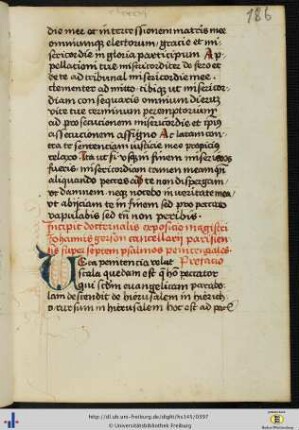 186
die mee et intercessionem matris mee
omniumque electorum / gracie et mi-
sericordie in gloria participum Ap-
pellationi tue misericorditer defero et
de te ad tribunal misericordie mee
clementer admitto tibique ut misericor-
diam consequaris omnium dierum
vite tue terminum peremptorium
ad prosecutionem misericordie et
assecucionem assigno Ac latam con-
tra te sententiam iusticie mee propicius
relaxo Ita ut si usque in finem misericors
fueris misericordiam tamen meamque
aliquando perces ut non dispergam
ut damnem neque notebo in veritate mea
ut abijciam te in finem sed pro peccato
vapulabis sed tn non peribis
Incipit doctrinalis exposicio magistri
Iohannis gerson cancellarij parisien-
sis super septem psalmos penitenciales
Prefacio
Vera penitencia velut
scala quedam est qua homo peccator
qui secundum evangelicam parabo-
lam descendit de hierusalem in hierich
rursum in hierusalem hoc est ad
http://dl.ub.uni-freiburg.de/diglit/hs145/0397
© Universitätsbibliothek Freiburg